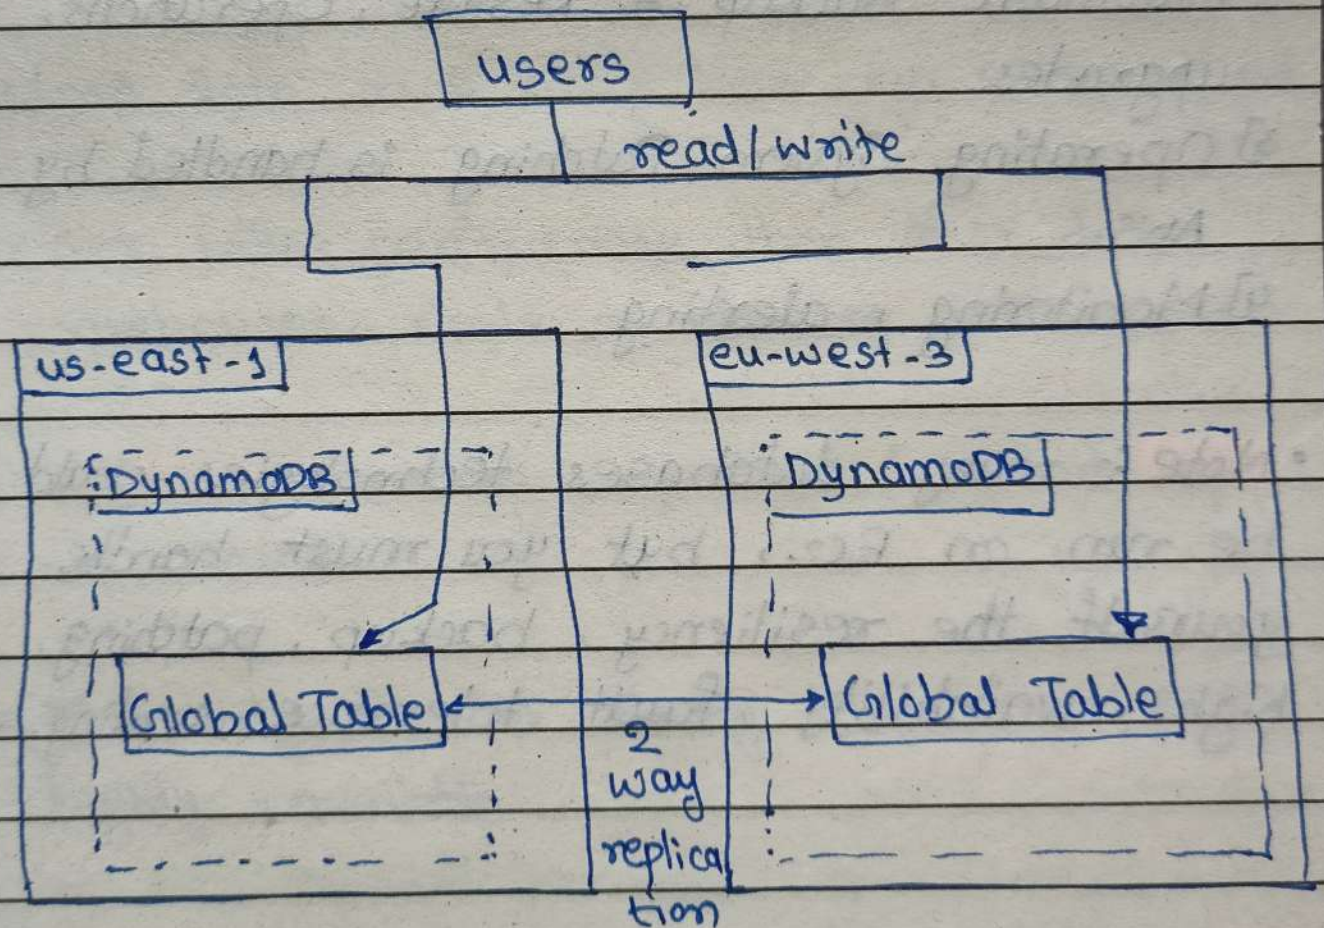 users
read/write
us-east-1
eu-west-3
DynamoDB
DynamoDB
Global Table
Global Table
2
way
replica
tion